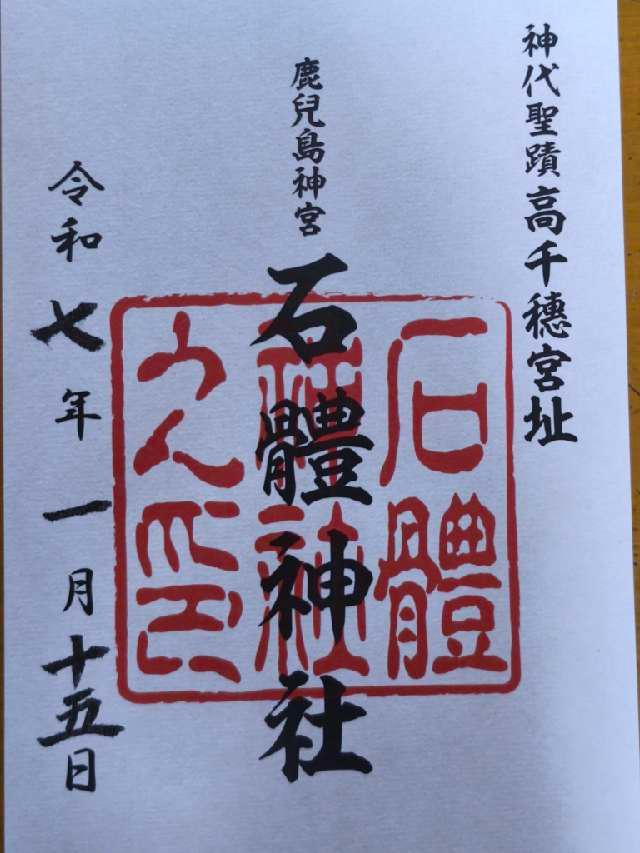 神代聖蹟高千穗宮址
鹿兒島神宮
石體神社
令和七年一月十五日
石體
神社
之印